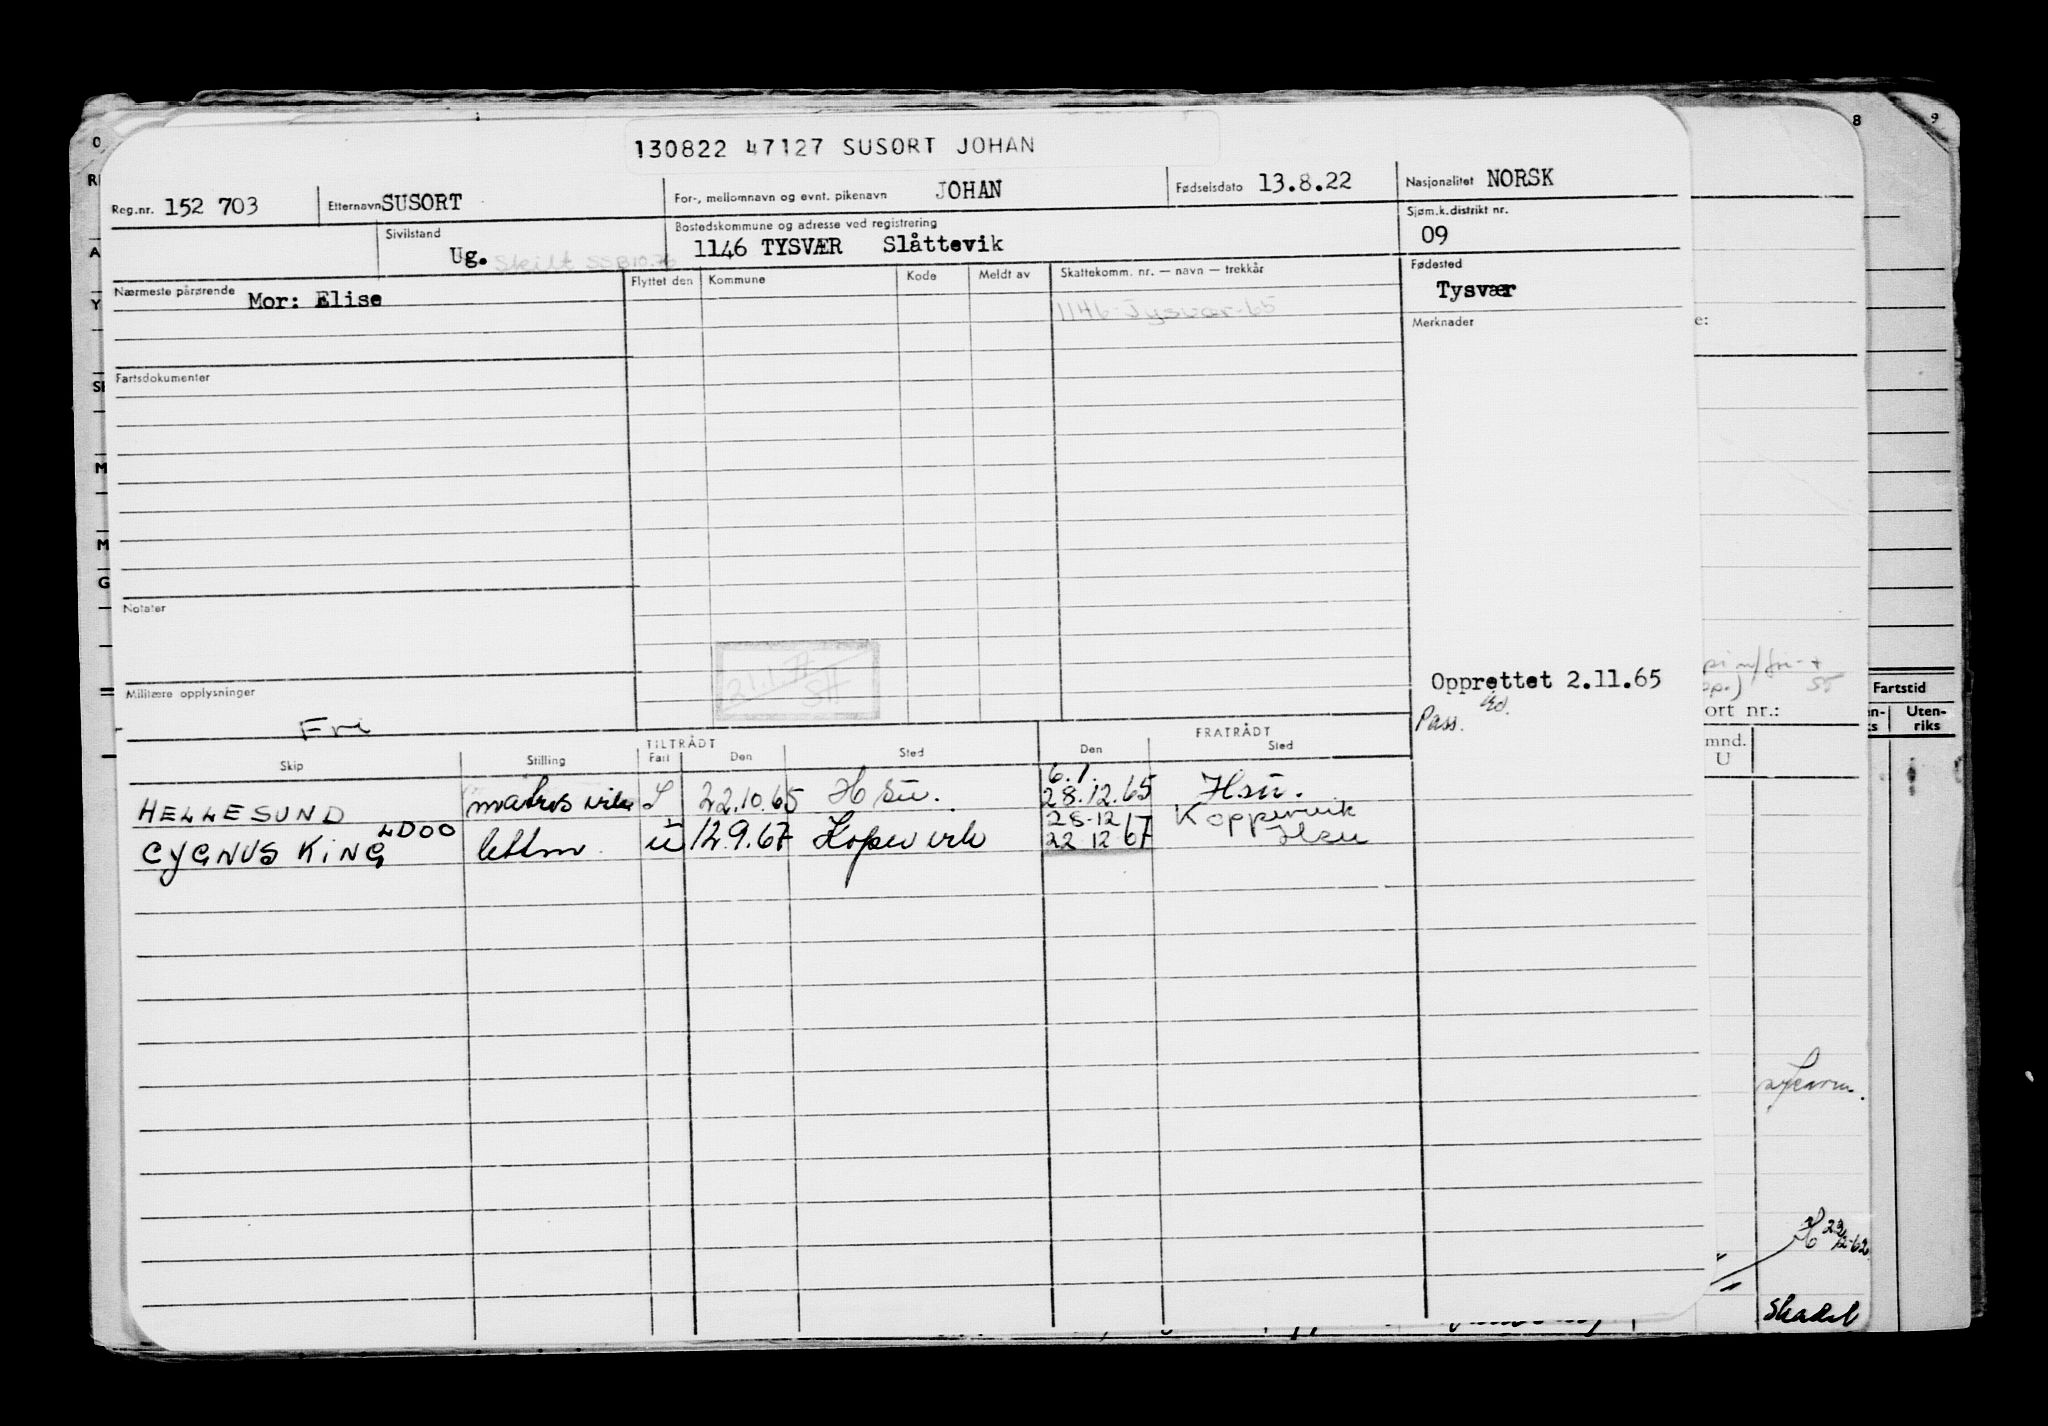 130822 47127 SUSORT JOHAN
Reg.nr. 152 703 Etternavn SUSORT For-, mellomnavn og evnt. pikenavn JOHAN Fødselsdato 13.8.22 Nasjonalitet NORSK
Sivilstand Ug. Skilt SSB 10.76 Bostedskommune og adresse ved registrering 1146 TYSVÆR Slåttevik Sjøm.k.distrikt nr. 09
Nærmeste pårørende Mor: Elise Flyttet den Kommune Kode Meldt av Skattekomm. nr. — navn — trekkår Fødested Tysvær
1146-Tysvær-65
Merknader
Fartsdokumenter
Notater
Militære opplysninger
Fri
Opprettet 2.11.65
Pass.
TILTRÅDT FRATRÅDT
Skip Stilling Fart Den Sted Den Sted
HELLESUND matros 22.10.65 6.1. 28.12.65
CYGNUS KING LDOO lettm. u 12.9.67 28.12 Koppervik
22.12.67
Fartstid
Uten-
riks
ort nr.:
mnd.
U
8
9